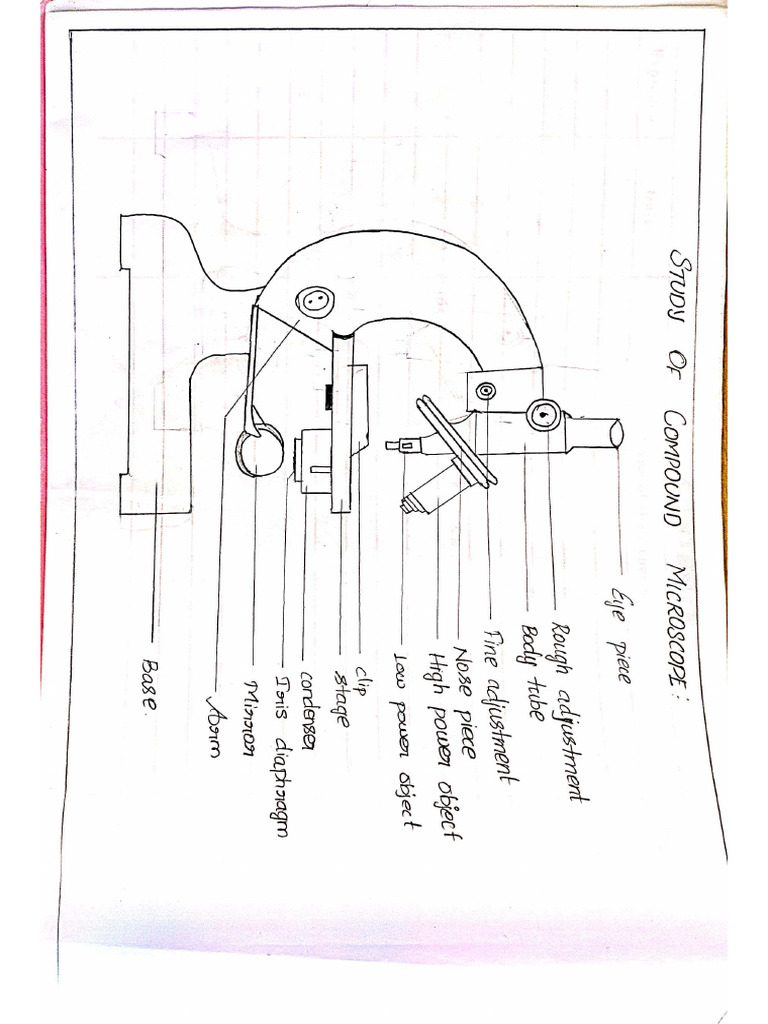 STUDY OF COMPOUND MICROSCOPE:
Eye piece
Rough adjustment
Body tube
Fine adjustment
Nose piece
High power object
Low power object
clip
stage
condenser
Iris diaphragm
Mirror
Arm
Base.